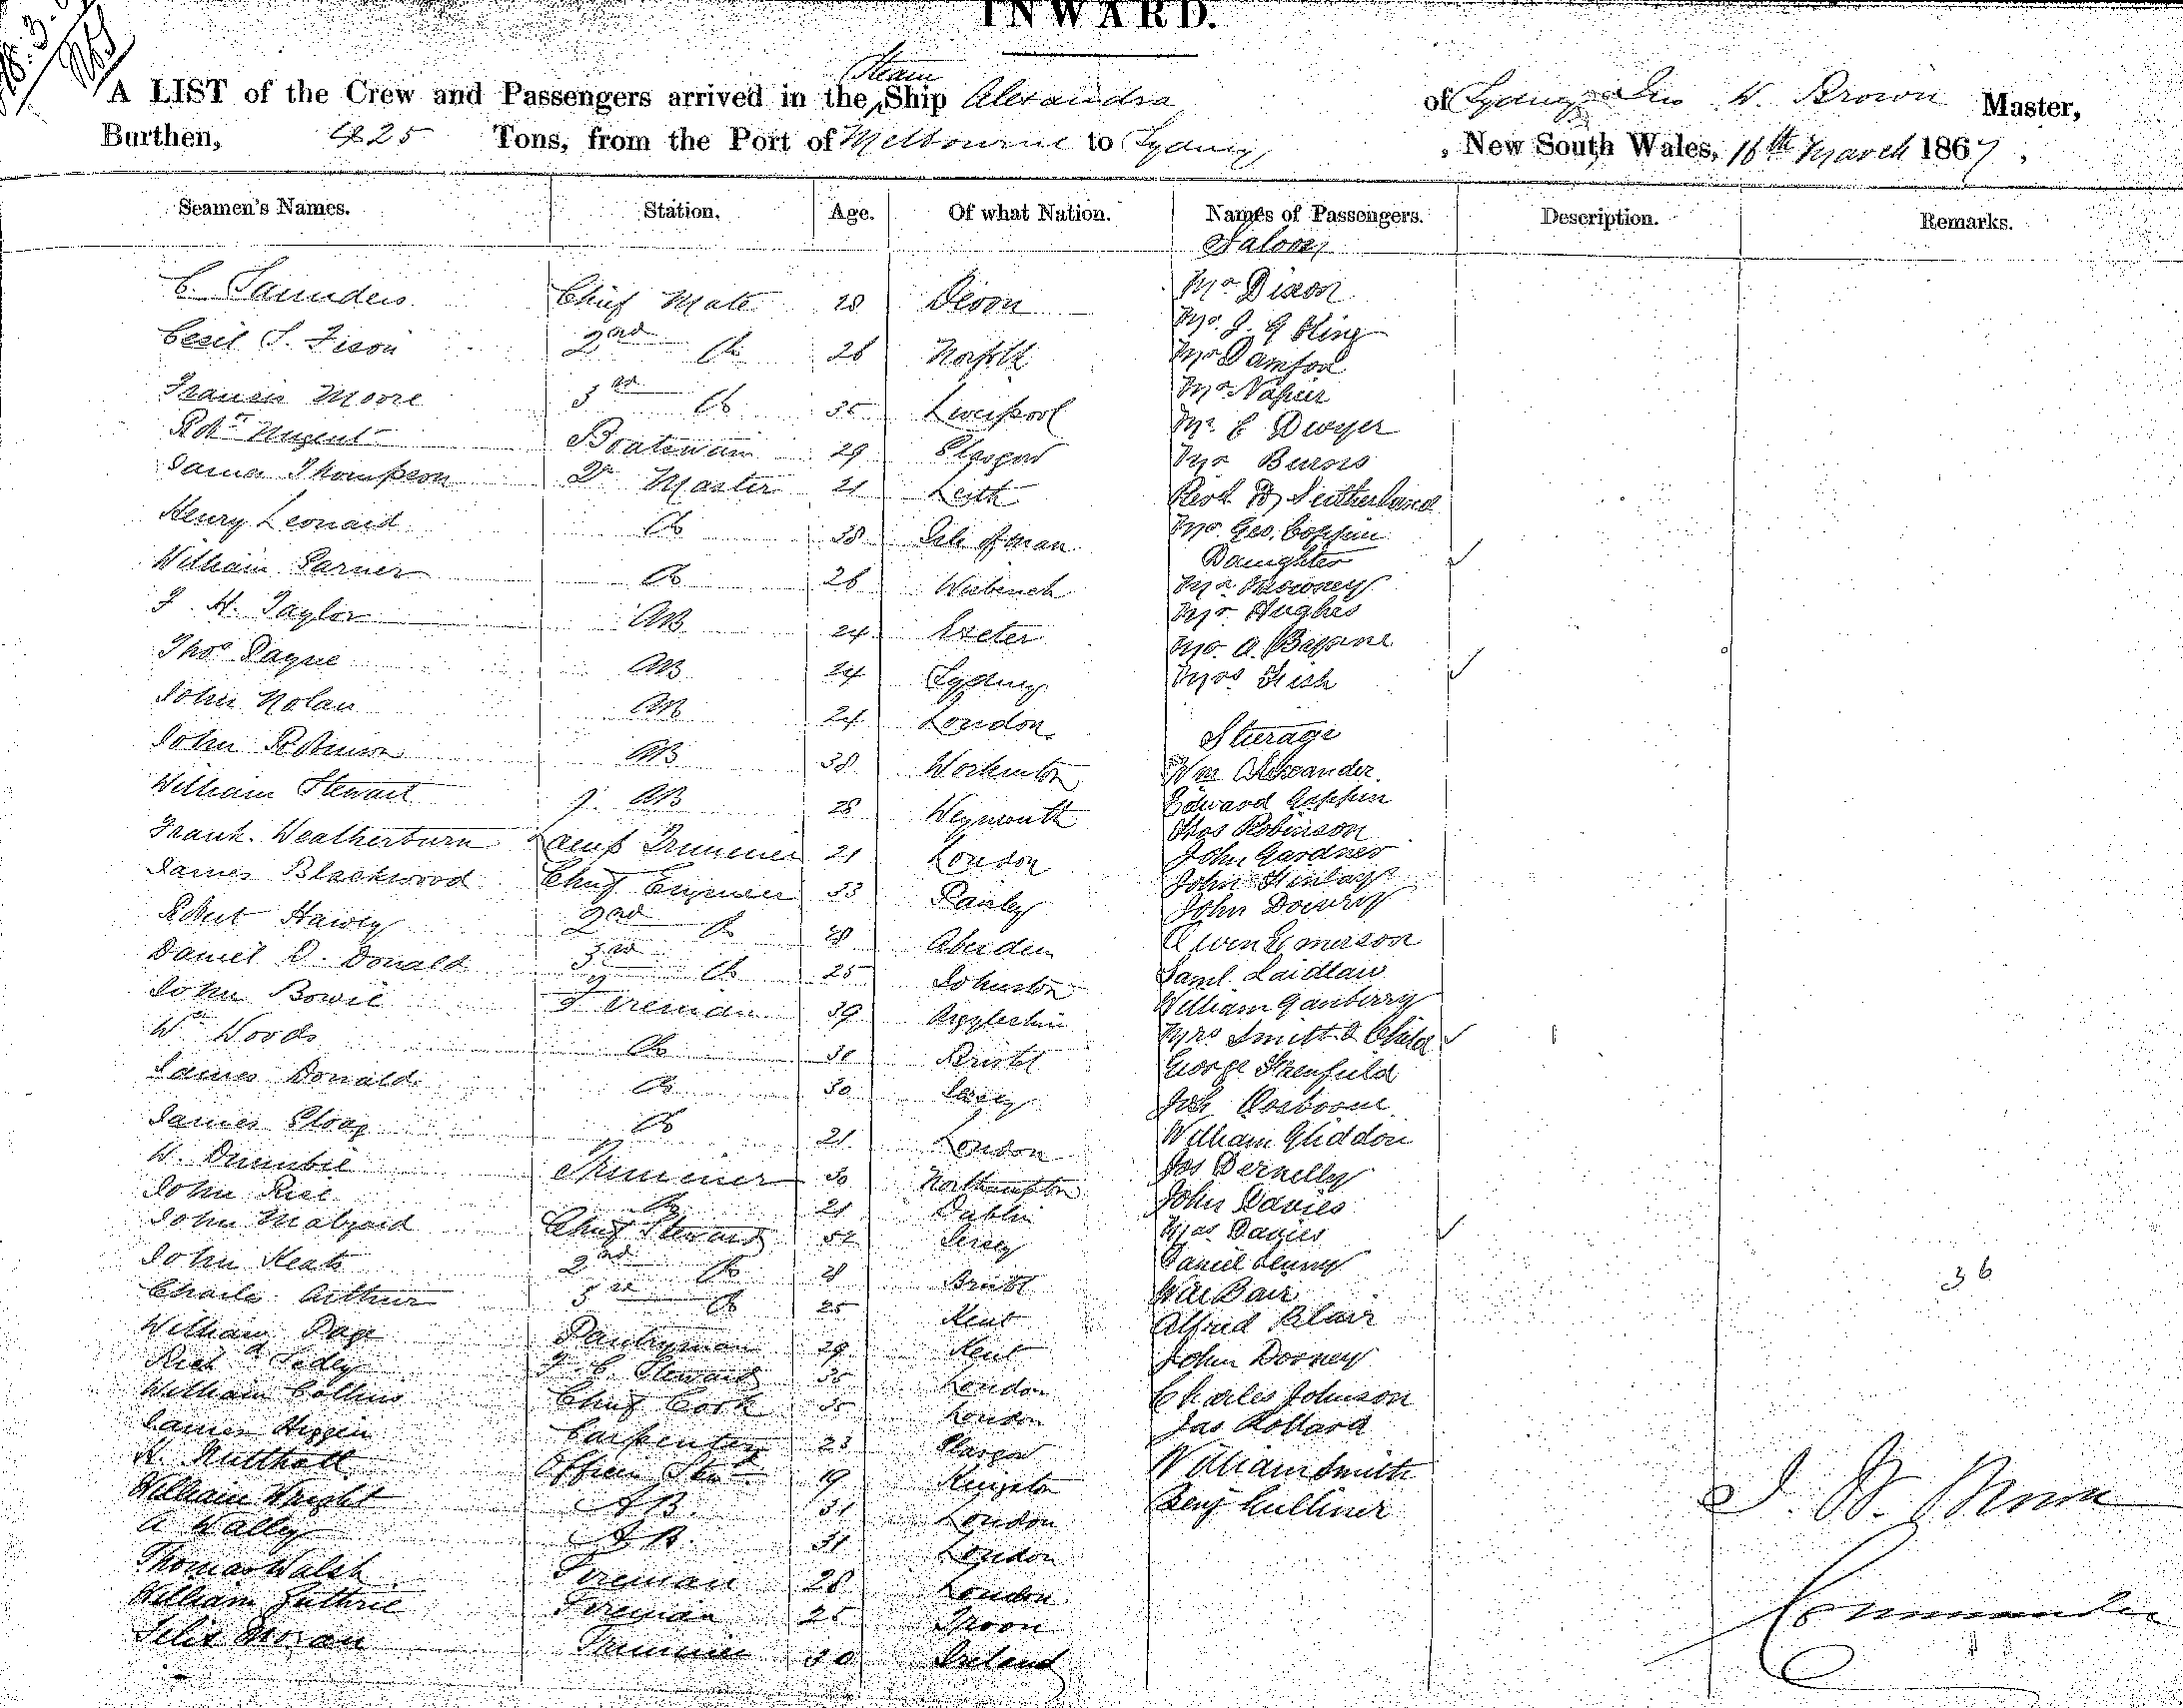 INWARD.
A LIST of the Crew and Passengers arrived in the Steam Ship Alexandra of Sydney W. Brown Master,
Burthen, 425 Tons, from the Port of Melbourne to Sydney, New South Wales, 16th March 1867,
Seamen's Names. Station. Age. Of what Nation. Names of Passengers. Description. Remarks.
Saloon
C. Saunders Chief Mate 28 Devon Mr Dixon
Cecil S. Fison 2nd Do 26 Norfolk Mr J. G King
Mr Damford
Francis Moore 3rd Do 35 Liverpool Mr Napier
Robt Nugent Boatswain 29 Glasgow Mr E Dwyer
James Thompson Qr Master 21 Leith Mr Burns
Revd Neitherland
Henry Leonard Do 38 Isle of Man Mr Geo. Coppin
Daughter
William Garner Do 26 Wisbeach
J. H. Taylor AB 24 Exeter Mr Hughes
Mr A.
Thos Payne AB 24 Sydney Mrs Fish
John Nolan AB 24 London
Steerage
John Robinson AB 38 Workinton Wm Alexander
William Stewart AB 28 Weymouth Edward Gappin
Thos Robinson
Frank Weatherburn Lamp Trimmer 21 London John Gardner
James Blackwood Chief Engineer 33 Paisley John Finlay
Robert Hawley 2nd Do Aberdeen John Dowry
Owen Emerson
Daniel D. Donald 3rd Do 25 Johnston Saml Laidlaw
John Bowie Fireman 39 Argyleshire William Ganberry
Wm Woods Do Bristol Mrs Smith & Child
James Donald Do 30 George
Jos Osborne
James Sloag Do 21 London William Gliddon
W. Trimmer 30 Northampton Jos Dernelly
John Rice Do 21 Dublin John Davies
John Chief Steward Jersey Mrs Davies
John Neats 2nd Do 28 Bristol Daniel Lenny
Charles Arthur 3rd Do 25 Kent
Alfred Blair
William Page Pantryman 29 Kent John Dorney
Richd Sedley F. C. Steward 35 London Charles Johnson
William Collins Chief Cook 35 London Jas Pollard
James Higgin Carpenter 23 Glasgow William Smith
H. Nutthall Officers Std 19 Kingston Benj Culliner
William Wright AB. 31 London
A Wally AB. 31 London
Thomas Walsh Fireman 28 London
William Guthrie Fireman 25 Troon
Felix Moran Trimmer 30 Ireland
36
J. W. Brown
Commander